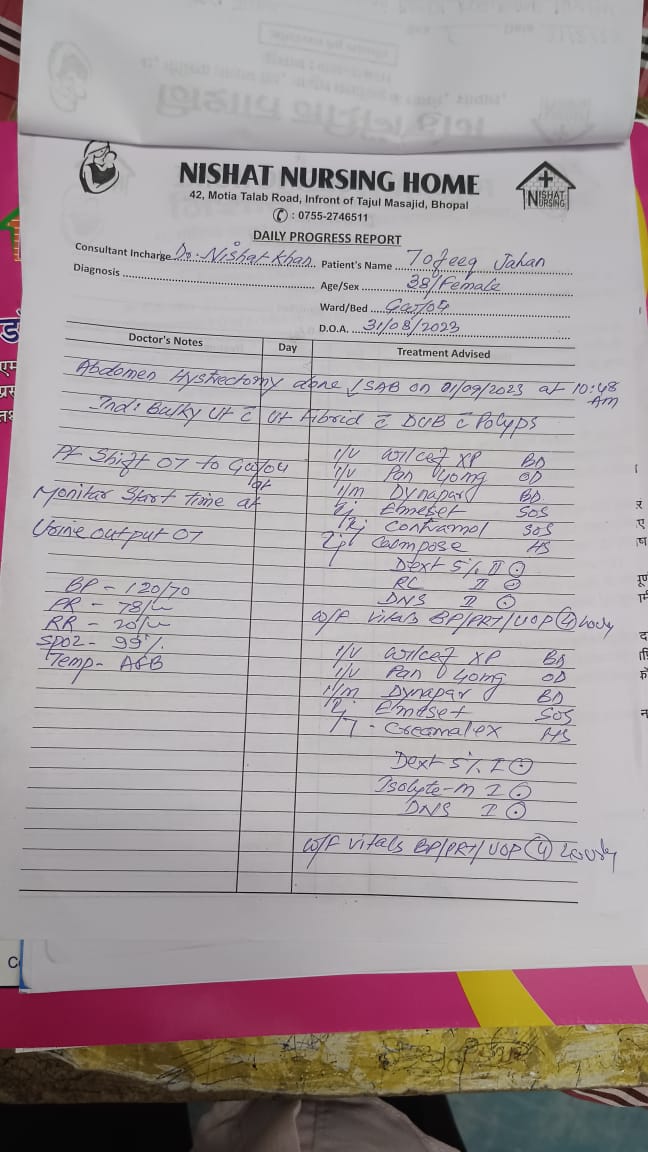 NISHAT NURSING HOME
NISHAT
NURSING
42, Motia Talab Road, Infront of Tajul Masajid, Bhopal
✆ : 0755-2746511
DAILY PROGRESS REPORT
Consultant Incharge Dr. Nishat Khan Patient's Name Tofeeq Jahan
Diagnosis Age/Sex 38/Female
Ward/Bed
D.O.A. 31/08/2023
Doctor's Notes Day Treatment Advised
Abdomen Hystrectomy done SAB on 01/09/2023 at 10:48 Am
Ind: Bulky Ut c̄ Ut Fibrid c̄ DUB c̄ Polyps
Pt Shift OT to at
Monitar Start time at
Urine output OT
BP - 120/70
PR -
RR -
SPO2 - 99%
Temp-
I/V XP BD
I/V Pan 40mg OD
I/m Dynapar BD
Inj Emeset SOS
Inj Contramol SOS
Inj Calmpose HS
Dext 5% II
RL II
DNS II
w/f vitals BP/PRT/UOP 4 hourly
I/V XP BD
I/V Pan 40mg OD
I/m Dynapar BD
Inj Emeset SOS
HS
Dext 5% I
Isolyte-m I
DNS I
w/f vitals BP/PRT/UOP 4 hourly